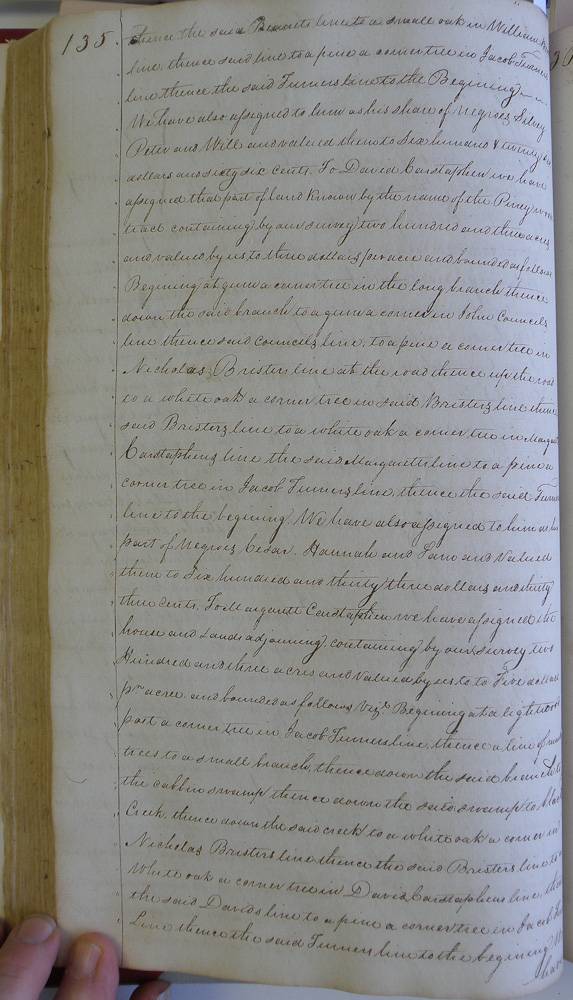 135. thence the said Bennets line to a small oak in William
line, thence said line to a pine a corner tree in Jacob Turners
line thence the said Turners line to the Begining
We have also assigned to him as his share of Negroes, Silvey
Peter and Will and valued them to Six hundred & twenty six
dollars and sixty six cents. To David Carstaphen we have
assigned that part of land known by the name of the Piney woods
tract containing by our survey two hundred and three acres
and valued by us to three dollars per acre and bounded as follows
Begining at gum a corner tree in the long branch thence
down the said branch to a gum a corner in John Councels
line thence said Councels line, to a pine a corner tree in
Nicholas Bristers line at the road thence up the road
to a white oak a corner tree in said Bristers line thence
said Bristers line to a white oak a corner tree in Margarett
Carstaphens line the said Margaretts line to a pine a
corner tree in Jacob Turners line, thence the said Turners
line to the begining. We have also assigned to him as his
part of Negroes, Cesar, Hannah and and Valued
them to Six hundred and thirty three dollars and thirty
three cents. To Margarett Carstaphen we have assigned the
house and Lands adjoining, containing by our survey two
Hundred and three acres and Valued by us to to Five dollars
pr acre and bounded as follows Vizt. Begining at a lightwood
post a corner tree in Jacob Turners line, thence a line of
trees to a small branch, thence down the said branch to
the cabbin swamp thence down the said swamp to
Creek, thence down the said creek to a white oak a corner in
Nicholas Bristers line thence the said Bristers line to a
White oak a corner tree in David Carstaphens line, thence
the said Davids line to a pine a corner tree in Jacob
Line thence the said Turners line to the begining We
have